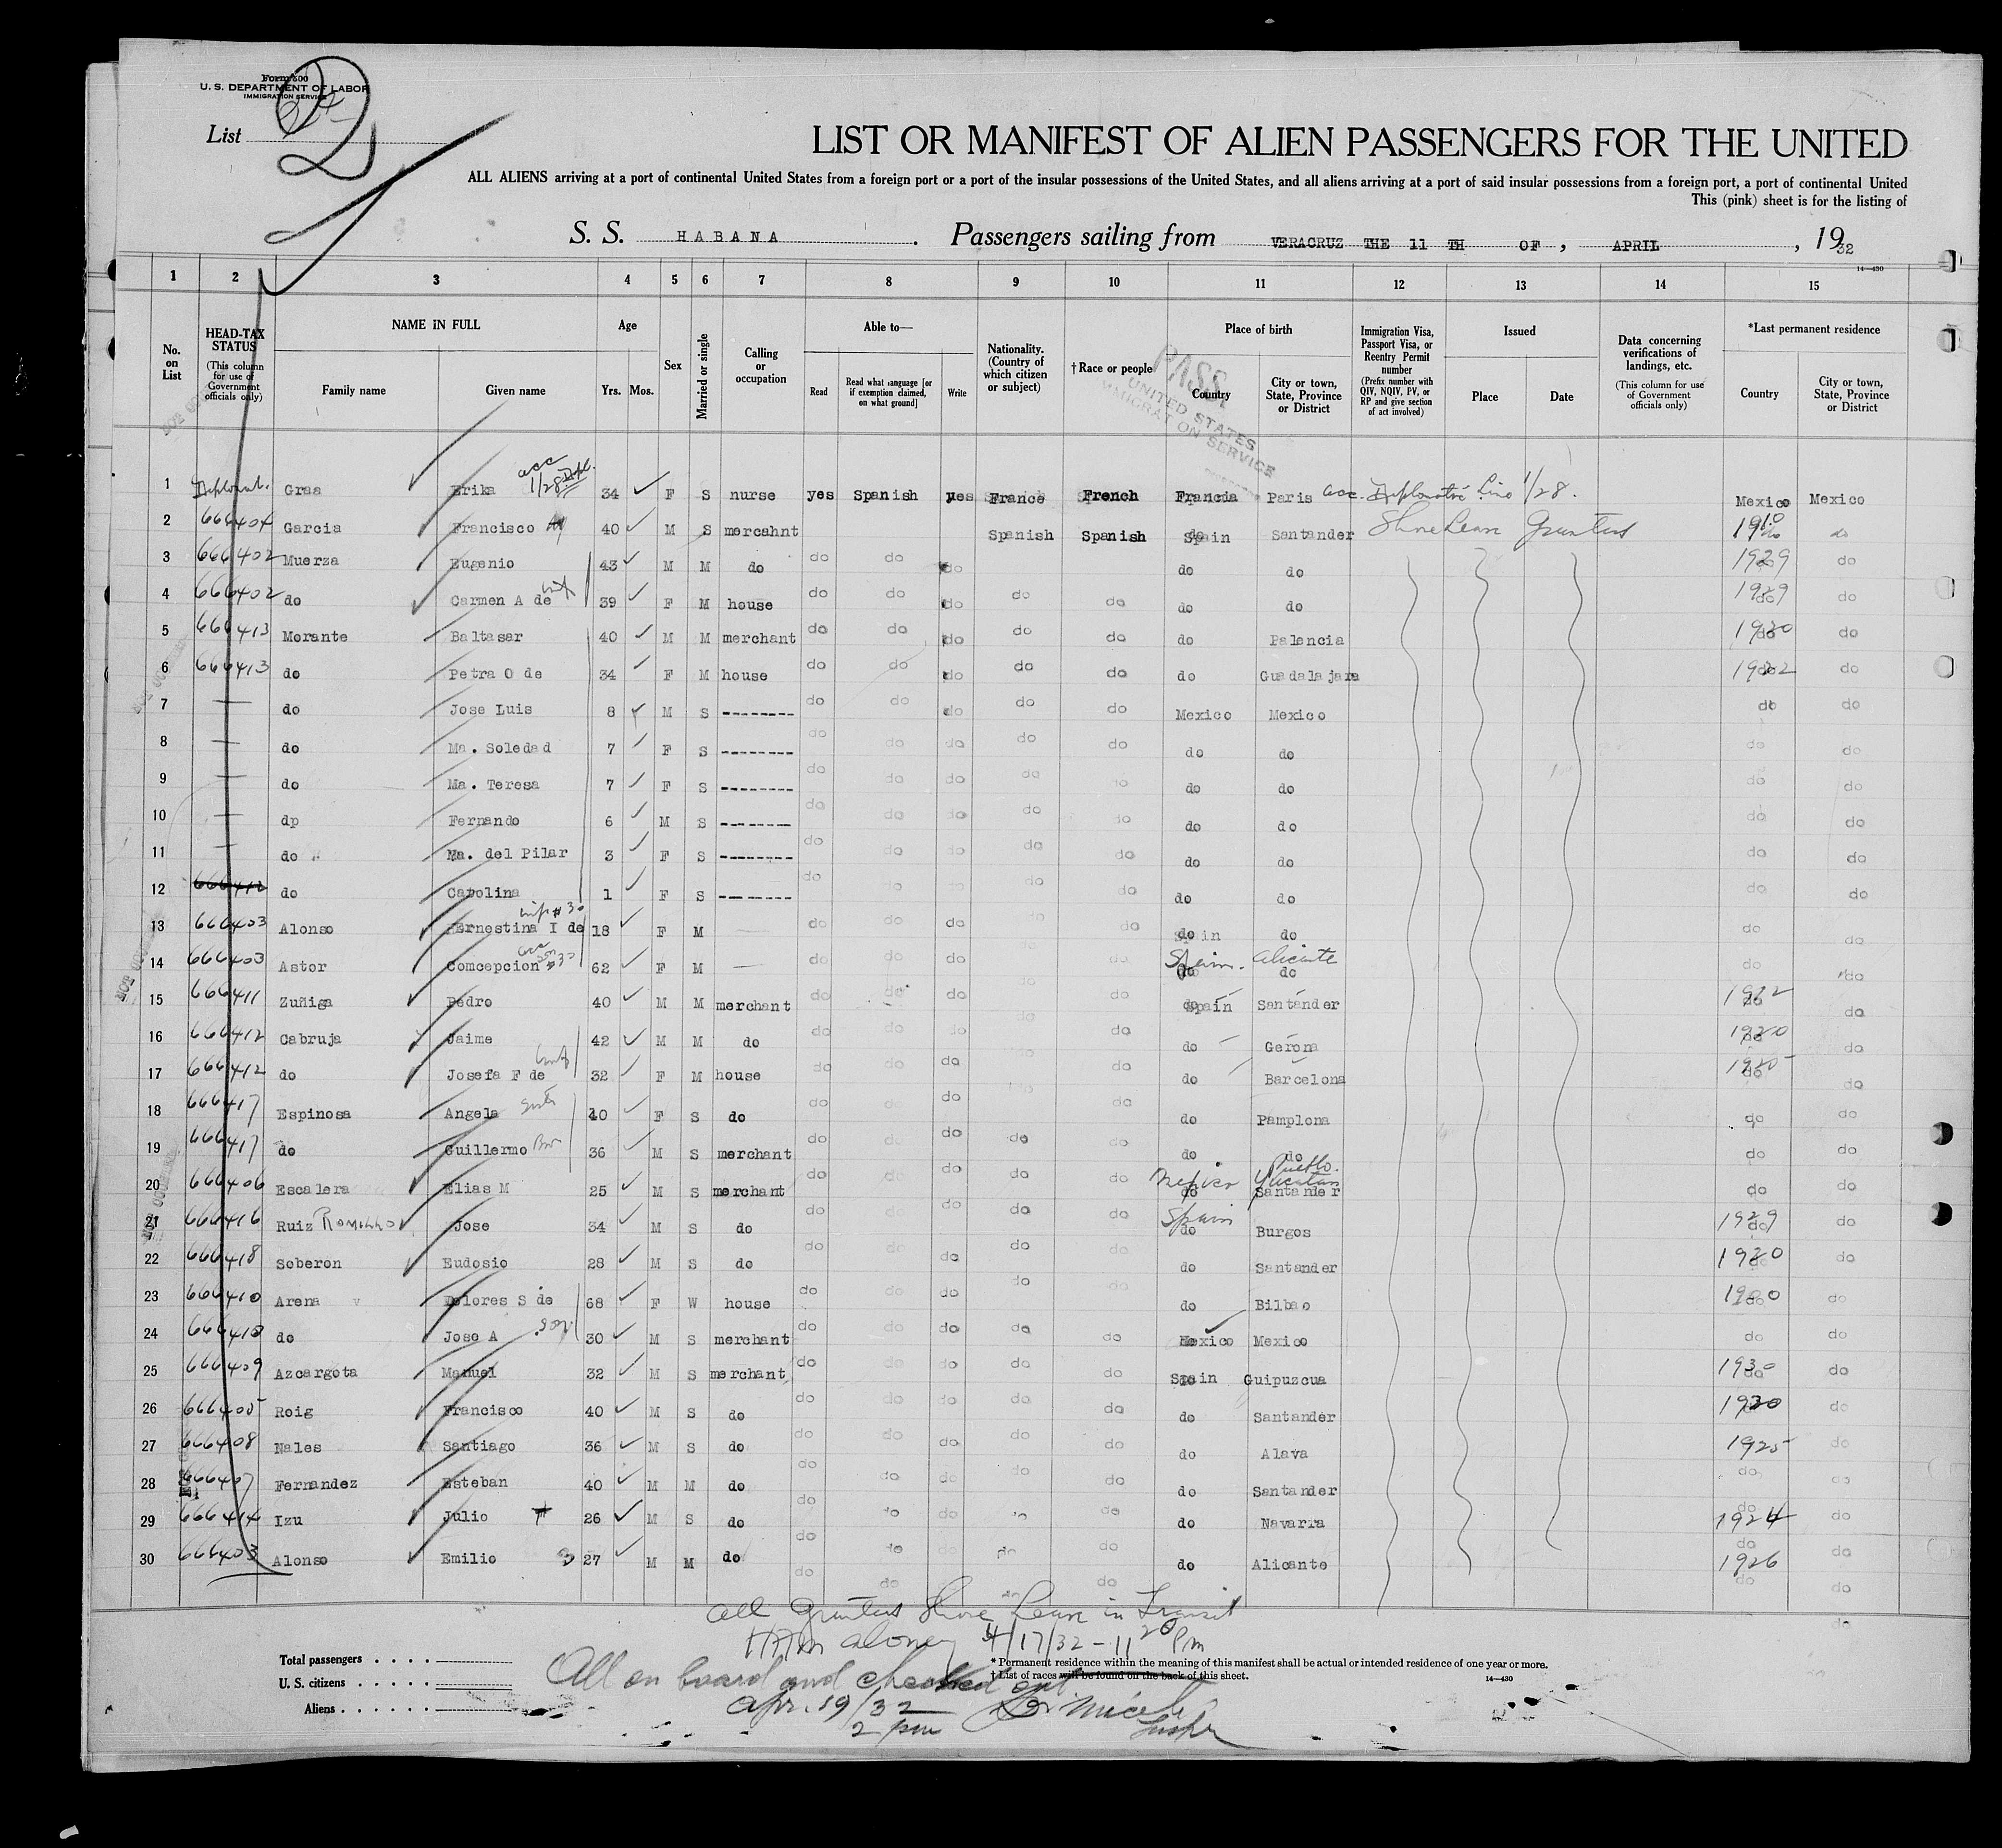 Form 500
U. S. DEPARTMENT OF LABOR
IMMIGRATION SERVICE
List 2
LIST OR MANIFEST OF ALIEN PASSENGERS FOR THE UNITED
ALL ALIENS arriving at a port of continental United States from a foreign port or a port of the insular possessions of the United States, and all aliens arriving at a port of said insular possessions from a foreign port, a port of continental United
This (pink) sheet is for the listing of
S. S. HABANA . Passengers sailing from VERACRUZ THE 11 TH OF , APRIL , 1932
14—430
1 2 3 4 5 6 7 8 9 10 11 12 13 14 15
No. on List
HEAD-TAX STATUS (This column for use of Government officials only)
NAME IN FULL Family name Given name
Age Yrs. Mos.
Sex
Married or single
Calling or occupation
Able to— Read Read what language [or if exemption claimed, on what ground] Write
Nationality. (Country of which citizen or subject)
†Race or people
Place of birth Country City or town, State, Province or District
Immigration Visa, Passport Visa, or Reentry Permit number (Prefix number with QIV, NQIV, PV, or RP and give section of act involved)
Issued Place Date
Data concerning verifications of landings, etc. (This column for use of Government officials only)
*Last permanent residence Country City or town, State, Province or District
PASS
UNITED STATES
IMMIGRATION SERVICE
1 Diplomat. Graa Erika acc 1/28 34 F S nurse yes Spanish yes France French Francia Paris acc. 1/28. Mexico Mexico
2 666404 Garcia Francisco 40 M S mercahnt Spanish Spanish Spain Santander Shore Leave Granted 1910 do
3 666402 Muerza Eugenio 43 M M do do do do do do 1929 do
4 666402 do Carmen A de wife 39 F M house do do do do do do do 1929 do
5 666413 Morante Baltasar 40 M M merchant do do do do do do Palencia 1920 do
6 666413 do Petra O de 34 F M house do do do do do do Guadalajara 1922 do
7 — do Jose Luis 8 M S -------- do do do do do Mexico Mexico do do
8 — do Ma. Soledad 7 F S -------- do do do do do do do do do
9 — do Ma. Teresa 7 F S -------- do do do do do do do do do
10 — dp Fernando 6 M S -------- do do do do do do do do do
11 — do Ma. del Pilar 3 F S -------- do do do do do do do do do
12 666412 do Carolina 1 F S -------- do do do do do do do do do
13 666403 Alonso Ernestina I de wife #30 18 F M — do do do do do Spain do do do
14 666403 Astor Comcepcion acc son #30 62 F M — do do do do Spain. Alicante do do do
15 666411 Zuñiga Pedro 40 M M merchant do do do do Spain Santander 1922 do
16 666412 Cabruja Jaime 42 M M do do do do do do Gerona 1920 do
17 666412 do Josefa F de wife 32 F M house do do do do do Barcelona do
18 666417 Espinosa Angela sister 40 F S do do do do do do Pamplona do do
19 666417 do Guillermo Bro 36 M S merchant do do do do do do do do do
20 666406 Escalera Elias M 25 M S merchant do do do do do Mexico Yucatan Santander do do
21 666416 Ruiz Romillo Jose 34 M S do do do do do do Spain Burgos 1929 do
22 666418 Soberon Eudosio 28 M S do do do do do do do Santander 1920 do
23 666410 Arena Dolores S de 68 F W house do do do do do do Bilbao 1900 do
24 666410 do Jose A son 30 M S merchant do do do do do Mexico Mexico do do
25 666409 Azcargota Manuel 32 M S merchant do do do do do Spain Guipuzcua 1930 do
26 666405 Roig Francisco 40 M S do do do do do do do Santander 1920 do
27 666408 Nales Santiago 36 M S do do do do do do do Alava 1925 do
28 666407 Fernandez Esteban 40 M M do do do do do do do Santander do do
29 666414 Izu Julio 26 M S do do do do do do Navarra 1924 do
30 666403 Alonso Emilio 27 M M do do do do do do do Alicante 1926 do
all Granted Shore Leave in Transit
4/17/32 - 11 20 Pm
Total passengers
U. S. citizens
Aliens
* Permanent residence within the meaning of this manifest shall be actual or intended residence of one year or more.
† List of races will be found on the back of this sheet.
14—430
All on board and checked out
Apr. 19/32
2 pm